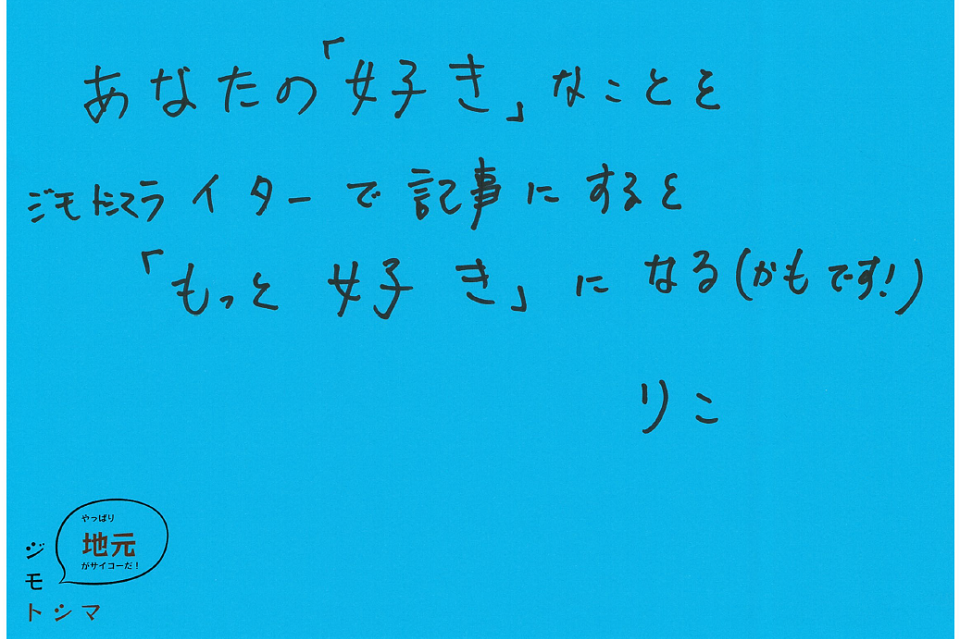 あなたの「好き」なことを
ジモトシマライターで記事にすると
「もっと好き」になる(かもです!)
りこ
やっぱり
地元
がサイコーだ!
ジ
モ
トシマ